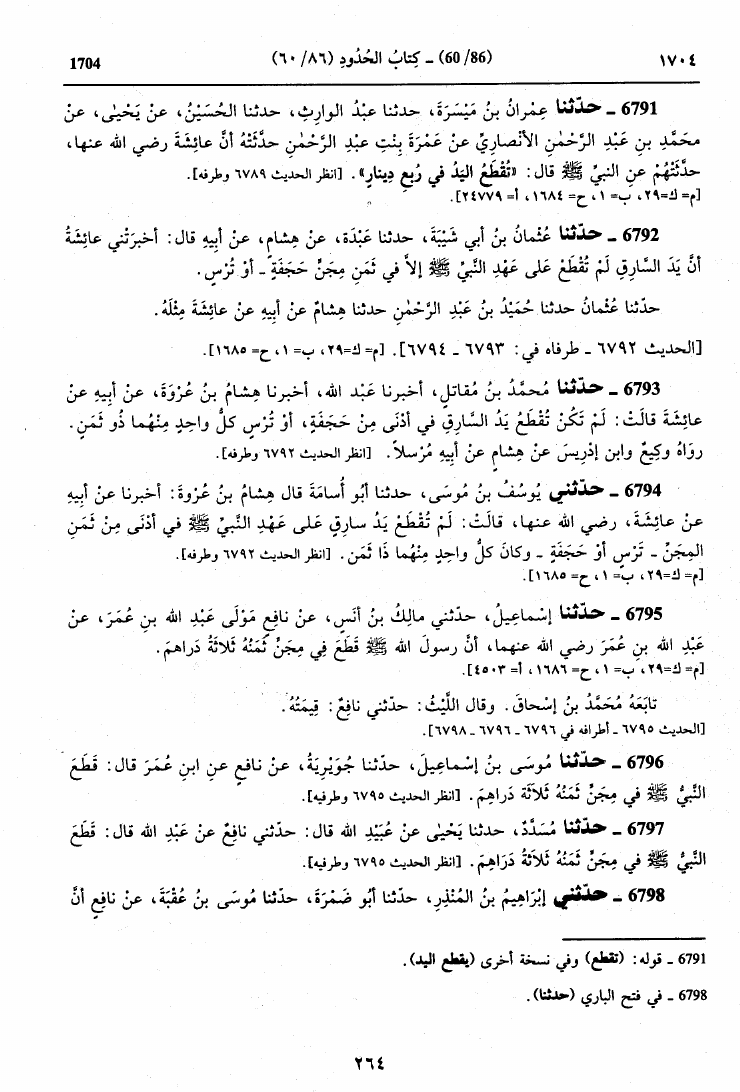 ١٧٠٤ (60/86) ـ كِتابُ الحُدُودِ (٨٦/ ٦٠) 1704
6791 ـ حدّثنا عِمْرانُ بنُ مَيْسَرَةَ، حدثنا عبْدُ الوارِثِ، حدثنا الحُسَيْنُ، عنْ يَحْيىٰ، عنْ
محَمَّدِ بنِ عَبْدِ الرَّحْمٰنِ الأنْصارِيِّ عنْ عَمْرَةَ بِنْتِ عبْدِ الرَّحْمٰنِ حدَّثَتْهُ أنَّ عائِشَةَ رضي الله عنها،
حدَّثَتْهُمْ عن النبيِّ ﷺ قال: «تُقْطَعُ اليَدُ في رُبعِ دِينارٍ». [انظر الحديث ٦٧٨٩ وطرفه].
[م= ك=٢٩، ب= ١، ح= ١٦٨٤، أ= ٢٤٧٧٩].
6792 ـ حدّثنا عُثْمانُ بنُ أبي شَيْبَةَ، حدثنا عَبْدَة، عنْ هِشامٍ، عنْ أبِيهِ قال: أخبرَتْني عائِشَةُ
أنَّ يَدَ السَّارِقِ لَمْ تُقْطَعْ على عَهْدِ النَّبيِّ ﷺ إلاَّ في ثَمَنِ مِجَنٍّ حَجَفَةٍ ـ أوْ تُرْسٍ.
حدّثنا عُثْمانُ حدثنا حُمَيْدُ بنُ عَبْدِ الرَّحْمٰنِ حدثنا هِشامٌ عنْ أبيهِ عنْ عائِشَةَ مِثْلَهُ.
[الحديث ٦٧٩٢ ـ طرفاه في: ٦٧٩٣ ـ ٦٧٩٤]. [م= ك=٢٩، ب= ١، ح= ١٦٨٥].
6793 ـ حدّثنا مُحمَّدُ بنُ مُقاتلٍ، أخبرنا عَبْد الله، أخبرنا هِشامُ بنُ عُرْوَةَ، عنْ أبِيهِ عنْ
عائِشَةَ قالَتْ: لَمْ تَكُنْ تُقْطَعُ يَدُ السَّارِقِ في أدْنَى مِنْ حَجَفَةٍ، أوْ تُرْسٍ كلُّ واحِدٍ مِنْهُما ذُو ثَمَنٍ.
رَوَاهُ وكِيعٌ وابن إدْرِيسَ عنْ هِشامٍ عنْ أبِيهِ مُرْسلاً. [انظر الحديث ٦٧٩٢ وطرفه].
6794 ـ حدّثني يُوسُفُ بنُ مُوسَى، حدثنا أبُو أُسامَةَ قال هِشامُ بنُ عُرْوةَ: أخبرنا عنْ أبِيهِ
عنْ عائِشَةَ، رضي الله عنها، قالَتْ: لَمْ تُقْطَعْ يَدُ سارِقٍ عَلى عَهْدِ النَّبيِّ ﷺ في أدْنَى مِنْ ثَمَنِ
المِجَنِّ ـ تُرْسٍ أوْ حَجَفَةٍ ـ وكانَ كلُّ واحِدٍ مِنْهُما ذَا ثَمَنٍ. [انظر الحديث ٦٧٩٢ وطرفه].
[م= ك=٢٩، ب= ١، ح= ١٦٨٥].
6795 ـ حدّثنا إسْماعِيلُ، حدّثني مالِكُ بنُ أنَسٍ، عنْ نافِعٍ مَوْلَى عَبْدِ الله بنِ عُمَرَ، عنْ
عَبْدِ الله بنِ عُمَرَ رضي الله عنهما، أنَّ رسولَ الله ﷺ قَطَعَ فِي مِجَنٍّ ثَمَنُهُ ثَلاَثَةُ دَراهِمَ.
[م= ك=٢٩، ب= ١، ح= ١٦٨٦، أ= ٤٥٠٣].
تابَعَهُ مُحَمَّدُ بنُ إسْحاقَ. وقال اللَّيْثُ: حدّثني نافِعٌ: قِيمَتُهُ.
[الحديث ٦٧٩٥ ـ أطرافه في ٦٧٩٦ ـ ٦٧٩٦ ـ ٦٧٩٨].
6796 ـ حدّثنا مُوسَى بنُ إسْماعِيلَ، حدّثنا جُوَيْرِيَةُ، عنْ نافعٍ عنِ ابنِ عُمَرَ قال: قَطَعَ
النَّبيُّ ﷺ في مِجَنٍّ ثَمَنُهُ ثَلاَثَة دَراهِمَ. [انظر الحديث ٦٧٩٥ وطرفيه].
6797 ـ حدّثنا مُسَدَّدٌ، حدثنا يَحْيىٰ عنْ عُبَيْدِ الله قال: حدّثني نافِعٌ عنْ عَبْدِ الله قال: قَطَعَ
النَّبيُّ ﷺ في مِجَنٍّ ثَمَنُهُ ثَلاَثَةُ دَرَاهِمَ. [انظر الحديث ٦٧٩٥ وطرفيه].
6798 ـ حدّثني إبْرَاهِيمُ بنُ المُنْذِرِ، حدّثنا أبُو ضَمْرَةَ، حدّثنا مُوسَى بنُ عُقْبَةَ، عنْ نافِعٍ أنَّ
6791 ـ قوله: (تقطع) وفي نسخة أخرى (يقطع اليد).
6798 ـ في فتح الباري (حدثنا).
٢٦٤